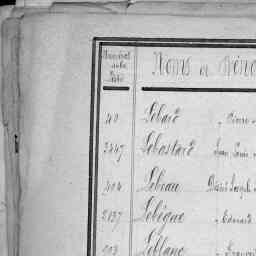 Numéros
de la
liste
Noms et Préno
40 Lebard Pierre
2447 Lebastard Jean Louis
404 Lebeau Désiré Joseph
2137 Lebègue Edouard
Leblanc François